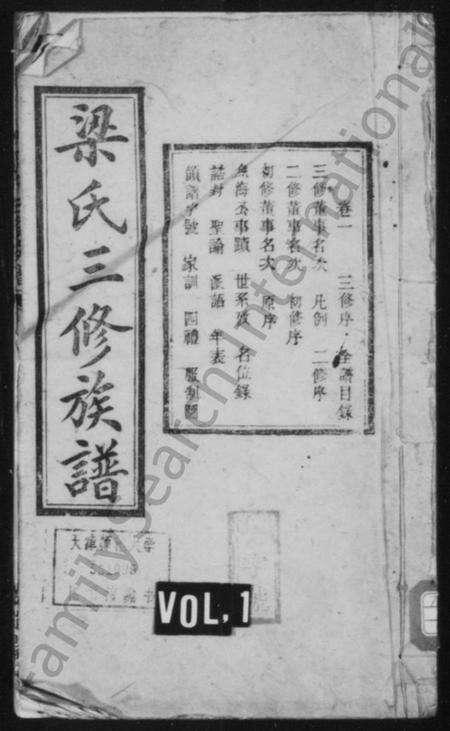 梁氏三修族譜
卷一 三修序 全譜目錄
三修董事名次 凡例 二修序
二修董事名次 初修序
初修董事名次 原序
事蹟 世系 名位錄
誥封 聖諭 派語 年表
領譜字號 家訓 四禮 服制圖
VOL, 1
familysearch International